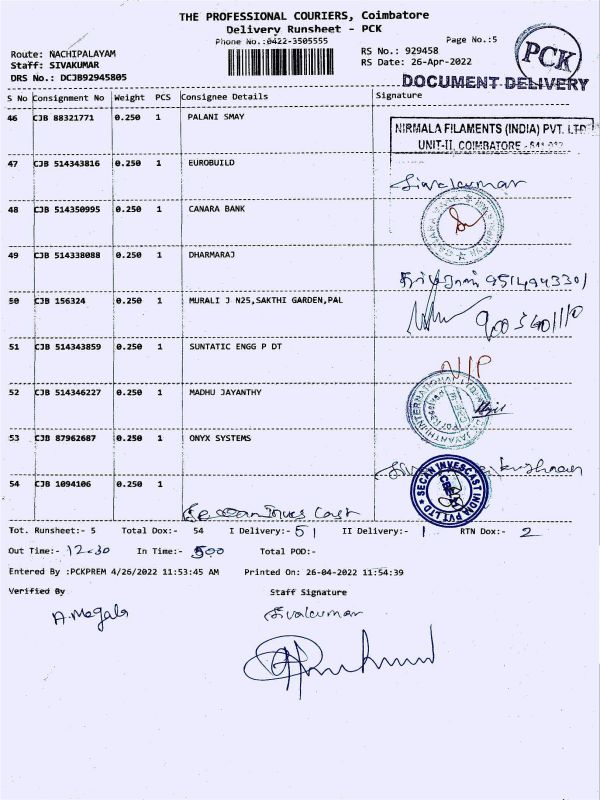 THE PROFESSIONAL COURIERS, Coimbatore
Delivery Runsheet - PCK
Phone No.:0422-3505555
Page No.:5
PCK
Route: NACHIPALAYAM
RS No.: 929458
Staff: SIVAKUMAR
RS Date: 26-Apr-2022
DRS No.: DCJB92945805
DOCUMENT DELIVERY
S No Consignment No Weight PCS Consignee Details Signature
46 CJB 88321771 0.250 1 PALANI SMAY
NIRMALA FILAMENTS (INDIA) PVT. LTD
UNIT-II, COIMBATORE - 641
47 CJB 514343816 0.250 1 EUROBUILD
Sivakumar
48 CJB 514350995 0.250 1 CANARA BANK
49 CJB 514338088 0.250 1 DHARMARAJ
9514943301
50 CJB 156324 0.250 1 MURALI J N25,SAKTHI GARDEN,PAL
51 CJB 514343859 0.250 1 SUNTATIC ENGG P DT
52 CJB 514346227 0.250 1 MADHU JAYANTHY
53 CJB 87962687 0.250 1 ONYX SYSTEMS
54 CJB 1094106 0.250 1
SECAN INVESCAST INDIA PVT LTD
Secan Inves Cast
Tot. Runsheet:- 5 Total Dox:- 54 I Delivery:- 51 II Delivery:- 1 RTN Dox:- 2
Out Time:- 12-30 In Time:- 500 Total POD:-
Entered By :PCKPREM 4/26/2022 11:53:45 AM Printed On: 26-04-2022 11:54:39
Verified By Staff Signature
A. Megala Sivakumar